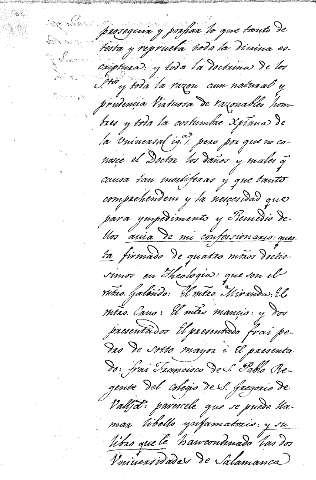 perseguir y profiar lo que tanto de
testa y reprueba toda la divina es
criptura: y toda la doctrina de los
Stos y toda la razon aun natural y
prudencia virtuosa de razonables hom
bres y toda la costumbre Xpiana de
la universal igª; pero por que no co
nosce el Doctor los daños y males q̃
causa tan mortiferas y que tanto
comprehendem y la necesidad que
para ympedimento y Remedio de
llos avia de mi confessionario, que es
ta firmado de quatro mr̃os doctis
simos en Theologia que son el
mr̃o Galindo: El mr̃o Miranda: El
mr̃o Cano: El mr̃o mancio; y dos
presentados El presentado frai pe
dro de soto mayor i El presenta
do: frai Francisco de S. Pablo Re
gente del colegio de S. Gregorio de
Vallid: parescele que se pudo lla
mar libello ynfamatorio: y su
libro que le han condenado las dos
Universidades de Salamanca